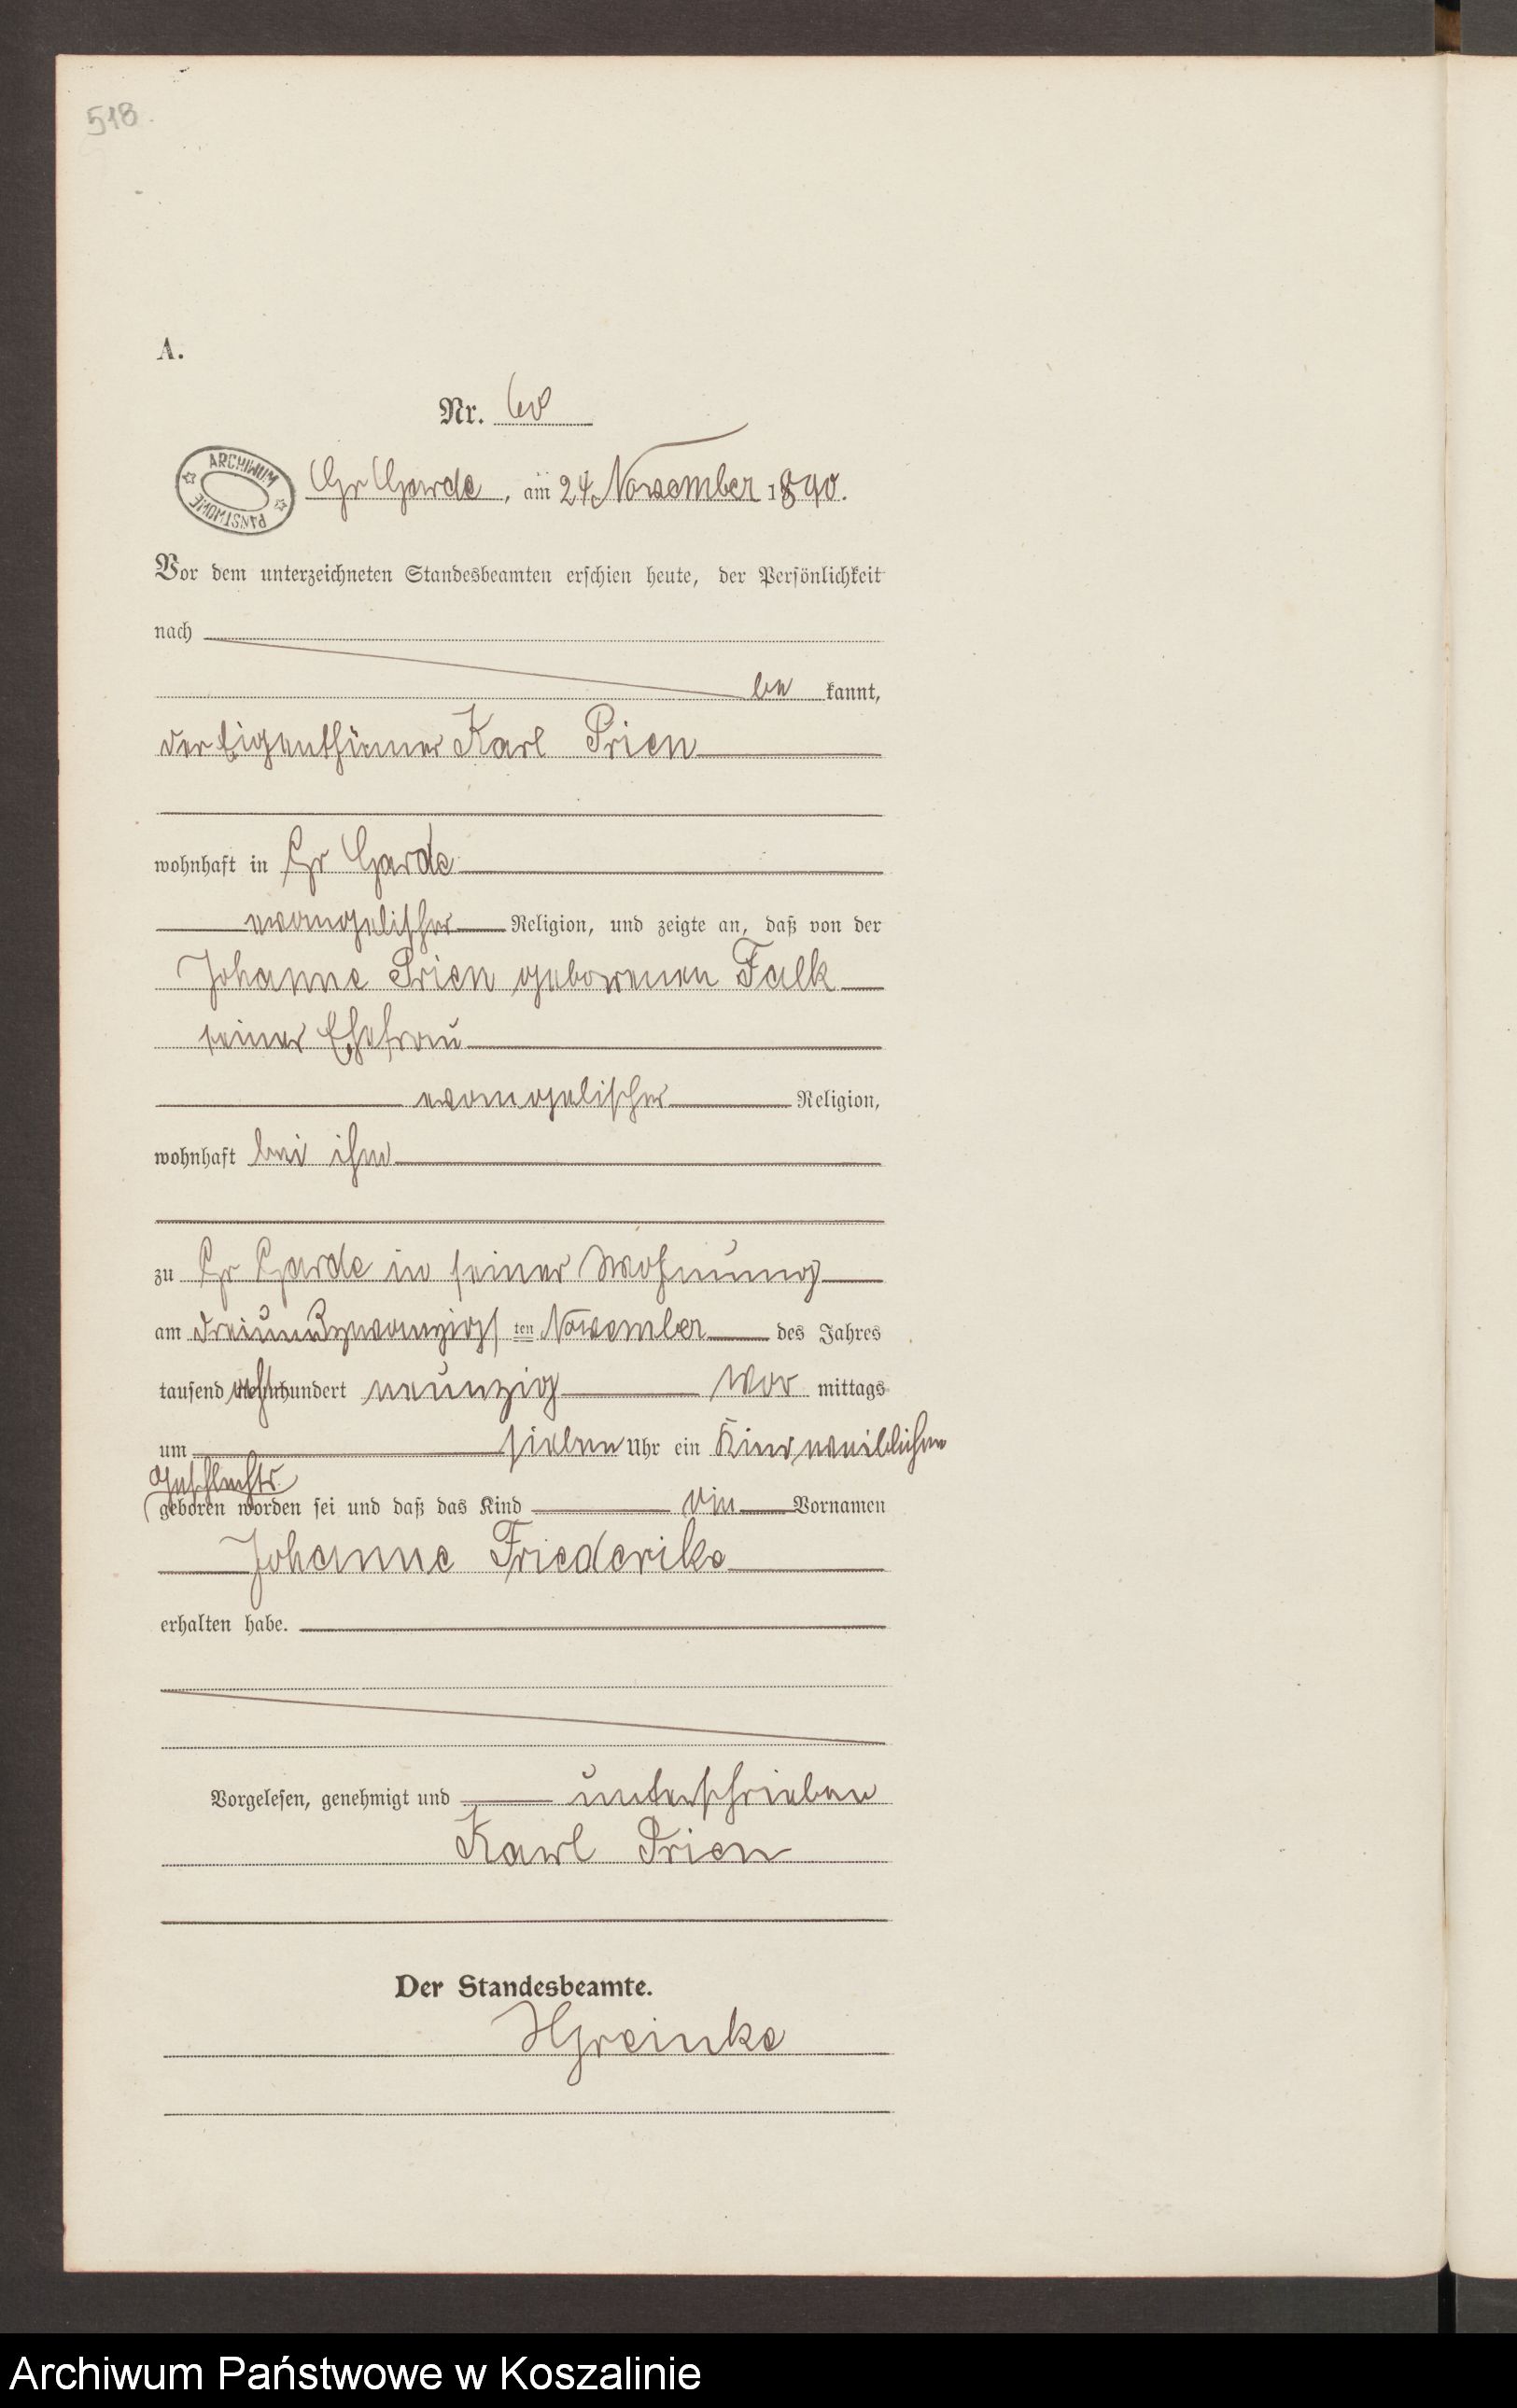 518.
A.
Nr. 60
ARCHIWUM PAŃSTWOWE
Gr Garde, am 24. November 1890.
Vor dem unterzeichneten Standesbeamten erschien heute, der Persönlichkeit
nach
be kannt,
der Eigenthümer Karl Prien
wohnhaft in Gr Garde
evangelischer Religion, und zeigte an, daß von der
Johanne Prien geborenen Falk
seiner Ehefrau
evangelischer Religion,
wohnhaft bei ihm
zu Gr Garde in seiner Wohnung
am dreiundzwanzigs ten November des Jahres
tausend achthundert neunzig Vor mittags
um sieben Uhr ein Kind weiblichen
Geschlechts
geboren worden sei und daß das Kind die Vornamen
Johanne Friederike
erhalten habe.
Vorgelesen, genehmigt und unterschrieben
Karl Prien
Der Standesbeamte.
HGreinke
Archiwum Państwowe w Koszalinie